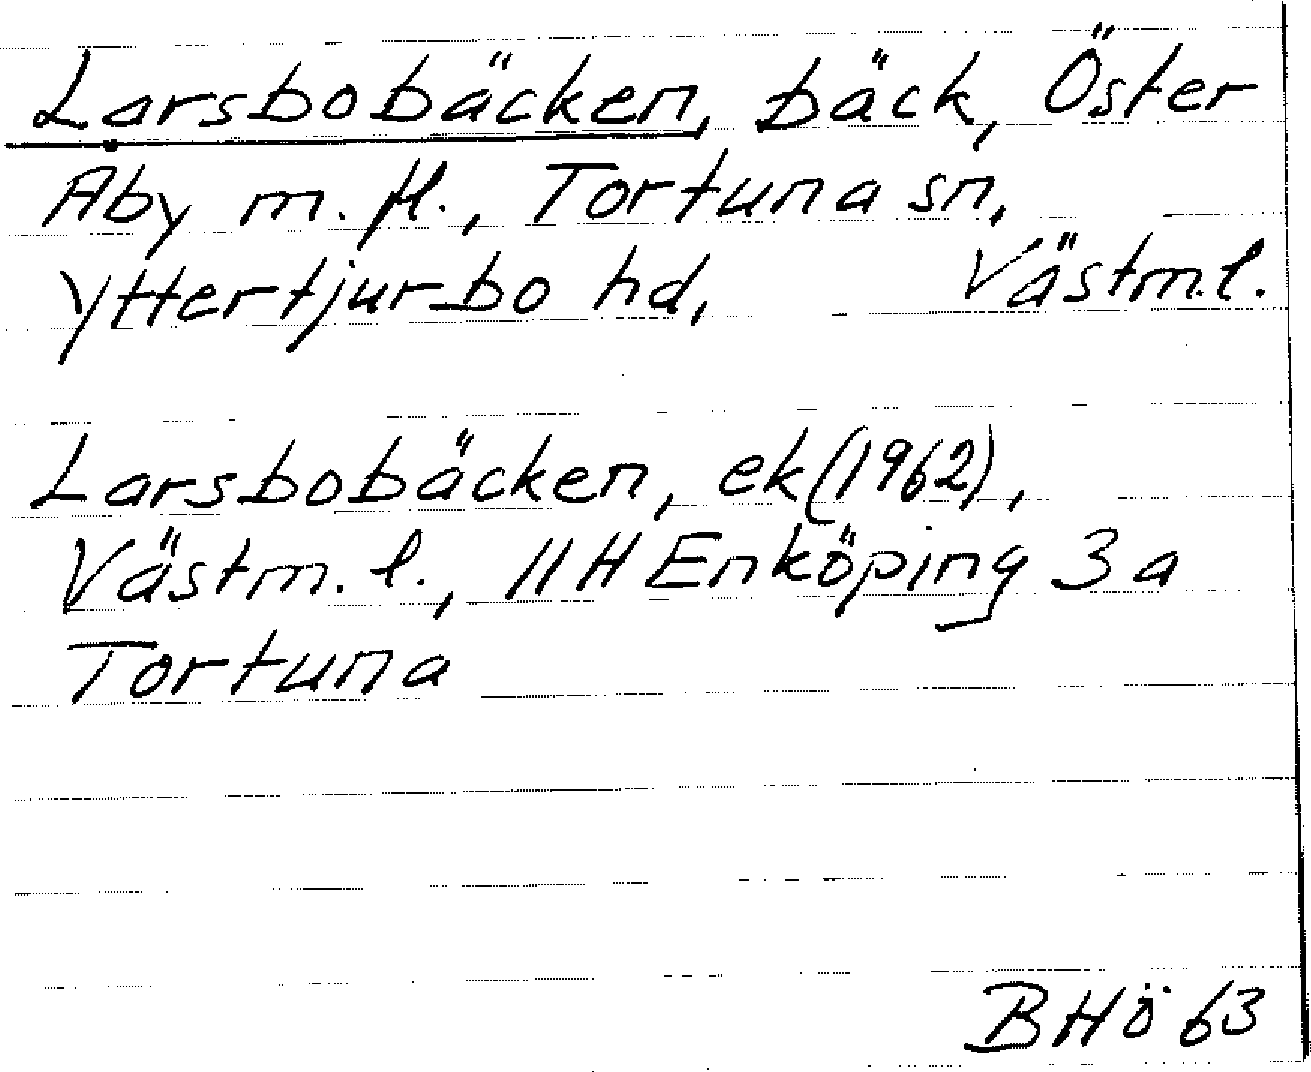 Larsbobäcken, bäck, Öster
Åby m.fl., Tortuna sn,
Yttertjurbo hd, Västm.l.
Larsbobäcken, ek (1962),
Västm.l., 11H Enköping 3a
Tortuna
BHö 63